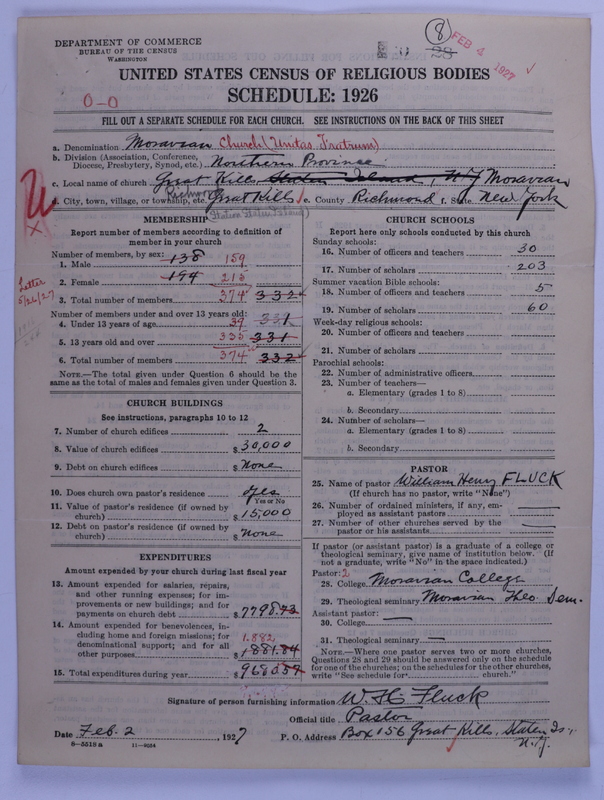 DEPARTMENT OF COMMERCE
BUREAU OF THE CENSUS
WASHINGTON
8
28
FEB 4 1927
UNITED STATES CENSUS OF RELIGIOUS BODIES
SCHEDULE: 1926
0-0
FILL OUT A SEPARATE SCHEDULE FOR EACH CHURCH. SEE INSTRUCTIONS ON THE BACK OF THIS SHEET
a. Denomination Moravian Church (Unitas Fratrum)
b. Division (Association, Conference, Diocese, Presbytery, Synod, etc.) Northern Province
c. Local name of church Great Kills, Staten Island, N.Y Moravian
Richmond
d. City, town, village, or township, etc. Great Kills e. County Richmond f. State New York
(Station Staten Island)
Letter
5/26/27
MEMBERSHIP
Report number of members according to definition of
member in your church
Number of members, by sex:
1. Male 138 159
2. Female 194 215
3. Total number of members 374 332
Number of members under and over 13 years old:
4. Under 13 years of age 39 331
5. 13 years old and over 335 331
6. Total number of members 374 332
NOTE.—The total given under Question 6 should be
same as the total of males and females given under Question 3.
CHURCH BUILDINGS
See instructions, paragraphs 10 to 12
7. Number of church edifices 2
8. Value of church edifices $30,000
9. Debt on church edifices $None
10. Does church own pastor's residence Yes
Yes or No
11. Value of pastor's residence (if owned by
church) $15,000
12. Debt on pastor's residence (if owned by
church) $None
EXPENDITURES
Amount expended by your church during last fiscal year
13. Amount expended for salaries, repairs,
and other running expenses; for im-
provements or new buildings; and for
payments on church debt $7798.73
14. Amount expended for benevolences, in-
cluding home and foreign missions; for
denominational support; and for all
other purposes $1881.84
1,882
15. Total expenditures during year $9680.57
CHURCH SCHOOLS
Report here only schools conducted by this church
Sunday schools:
16. Number of officers and teachers 30
17. Number of scholars 203
Summer vacation Bible schools:
18. Number of officers and teachers 5
19. Number of scholars 60
Week-day religious schools:
20. Number of officers and teachers
21. Number of scholars
Parochial schools:
22. Number of administrative officers
23. Number of teachers—
a. Elementary (grades 1 to 8)
b. Secondary
24. Number of scholars—
a. Elementary (grades 1 to 8)
b. Secondary
PASTOR
25. Name of pastor William Henry FLUCK
(If church has no pastor, write "None")
26. Number of ordained ministers, if any, em-
ployed as assistant pastors
27. Number of other churches served by the
pastor or his assistants
If pastor (or assistant pastor) is a graduate of a college or
theological seminary, give name of institution below. (If
not a graduate, write "No" in the space indicated.)
Pastor: 2
28. College Moravian College
29. Theological seminary Moravian Theo. Sem.
Assistant pastor:
30. College
31. Theological seminary
NOTE.—Where one pastor serves two or more churches,
Questions 28 and 29 should be answered only on the schedule
for one of the churches; on the schedules for the other churches,
write "See schedule for church."
Signature of person furnishing information W. H. Fluck
Official title Pastor
Date Feb. 2, 1927 P. O. Address Box 156 Great Kills, Staten Is.,
N.Y.
8-5518 a 11-9034